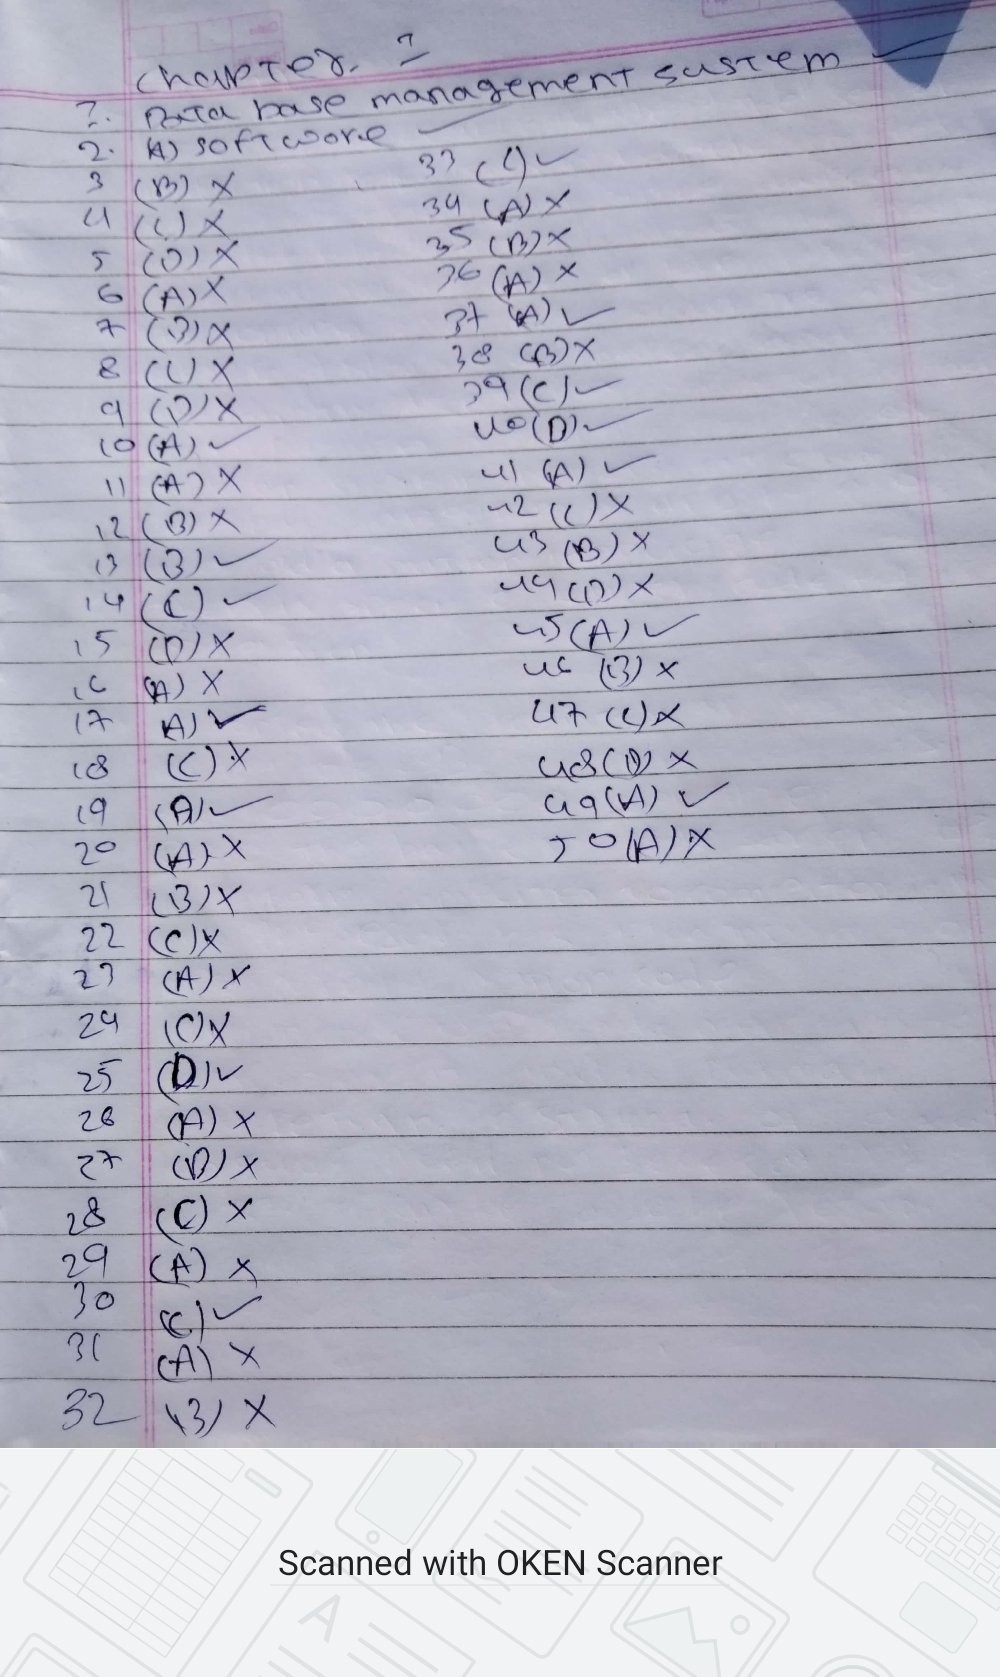 chapter. 1
1. Data base management sustem ✓
2. A) software ✓
3 (B) X
4 (C) X
5 (D) X
6 (A) X
7 (B) X
8 (C) X
9 (D) X
10 (A) ✓
11 (A) X
12 (B) X
13 (B) ✓
14 (C) ✓
15 (D) X
16 (A) X
17 A) ✓
18 (C) X
19 (A) ✓
20 (A) X
21 (B) X
22 (C) X
23 (A) X
24 (C) X
25 (D) ✓
26 (A) X
27 (B) X
28 (C) X
29 (A) X
30 (C) ✓
31 (A) X
32 (B) X
33 (C) ✓
34 (A) X
35 (B) X
36 (A) X
37 (A) ✓
38 (B) X
39 (C) ✓
40 (D) ✓
41 (A) ✓
42 (C) X
43 (B) X
44 (D) X
45 (A) ✓
46 (B) X
47 (C) X
48 (D) X
49 (A) ✓
50 (A) X
Scanned with OKEN Scanner